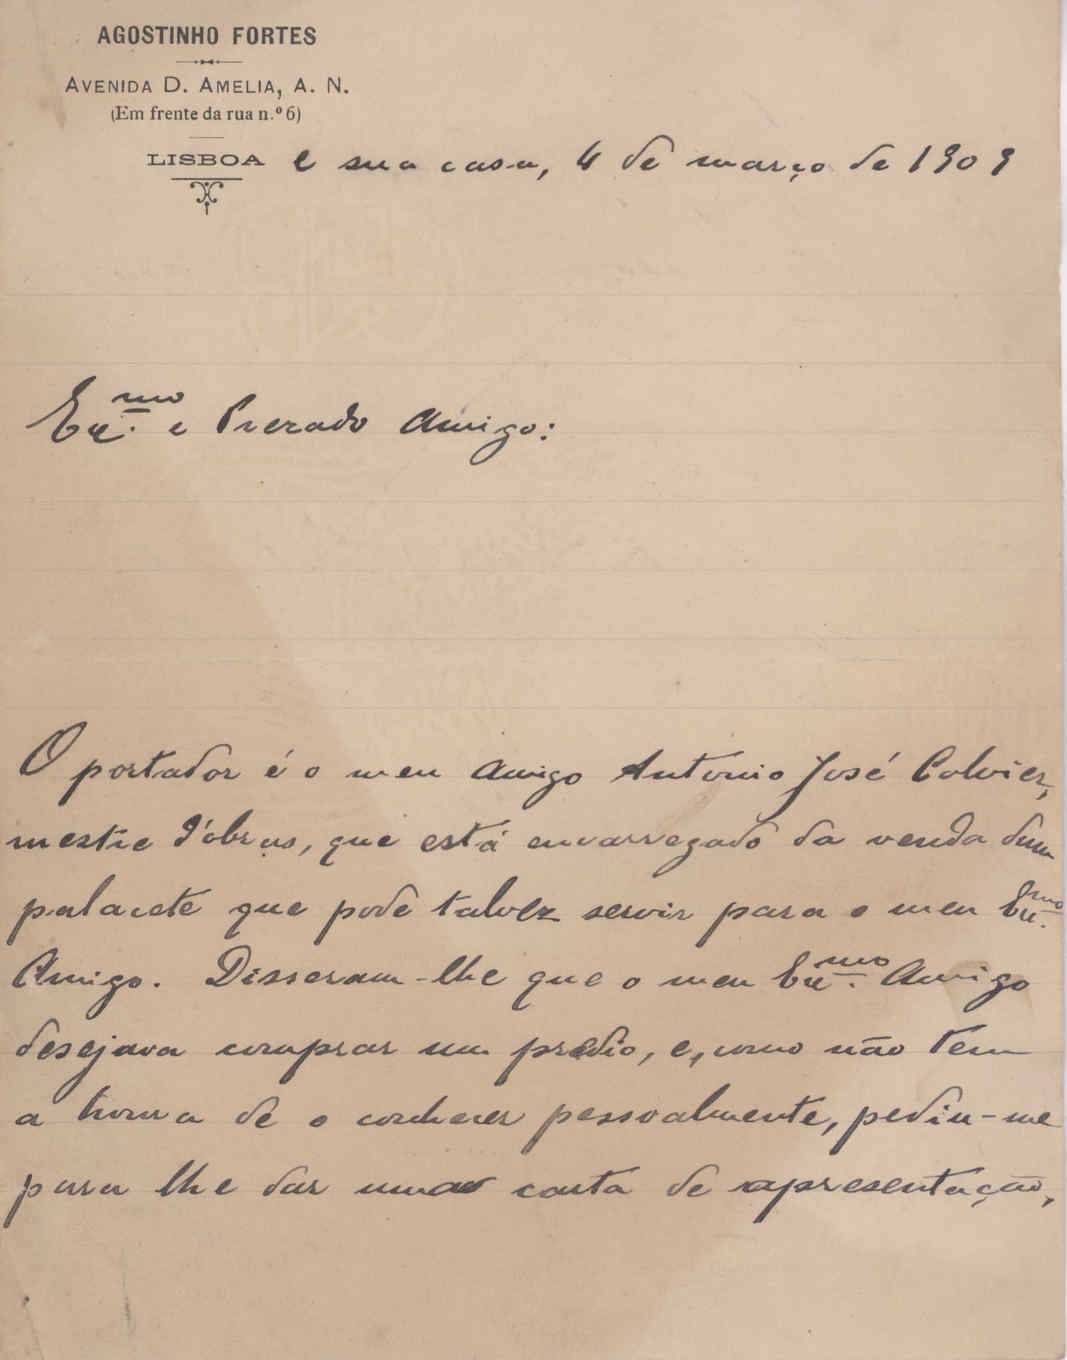 AGOSTINHO FORTES
AVENIDA D. AMELIA, A. N.
(Em frente da rua n.º 6)
LISBOA e sua casa, 4 de março de 1909
Exmo. e Prezado Amigo:
O portador é o meu amigo Antonio José
mestre d'obras, que está encarregado da venda dum
palacete que pode talvez servir para o meu Exmo.
Amigo. Disseram-lhe que o meu Exmo. Amigo
desejava comprar um predio, e, como não tem
a honra de o conhecer pessoalmente, pediu-me
para lhe dar uma carta de apresentação,